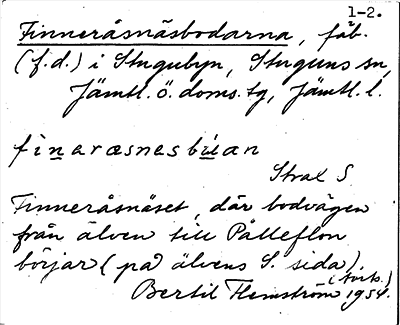 1-2.
Finneråsnäsbodarna, fäb.
(f.d.) i Stugubyn, Stuguns sn,
Jämtl. ö. doms. tg, Jämtl. l.
finaræsnesbúan
Strax S
Finneråsnäset, där bodvägen
från älven till Pålleflon
börjar (på älvens S. sida).
Bertil Flemström 1954.